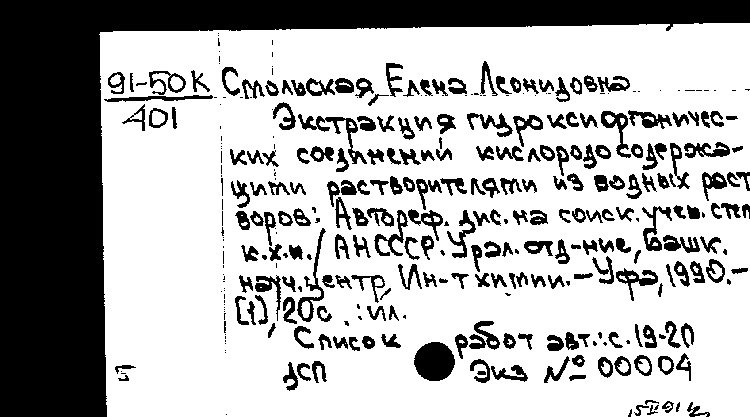 91-50К Стольская, Елена Леонидовна
401
Экстракция гидроксиорганичес-
ких соединений кислородосодержа-
щими растворителями из водных раст
воров: Автореф. дис. на соиск. учен. степ
к.х.н. / АН СССР. Урал. отд-ние, Башк.
науч. центр, Ин-т химии. – Уфа, 1990. –
[1], 20с. : ил.
Список работ авт.: с. 19-20
ДСП Экз № 00004